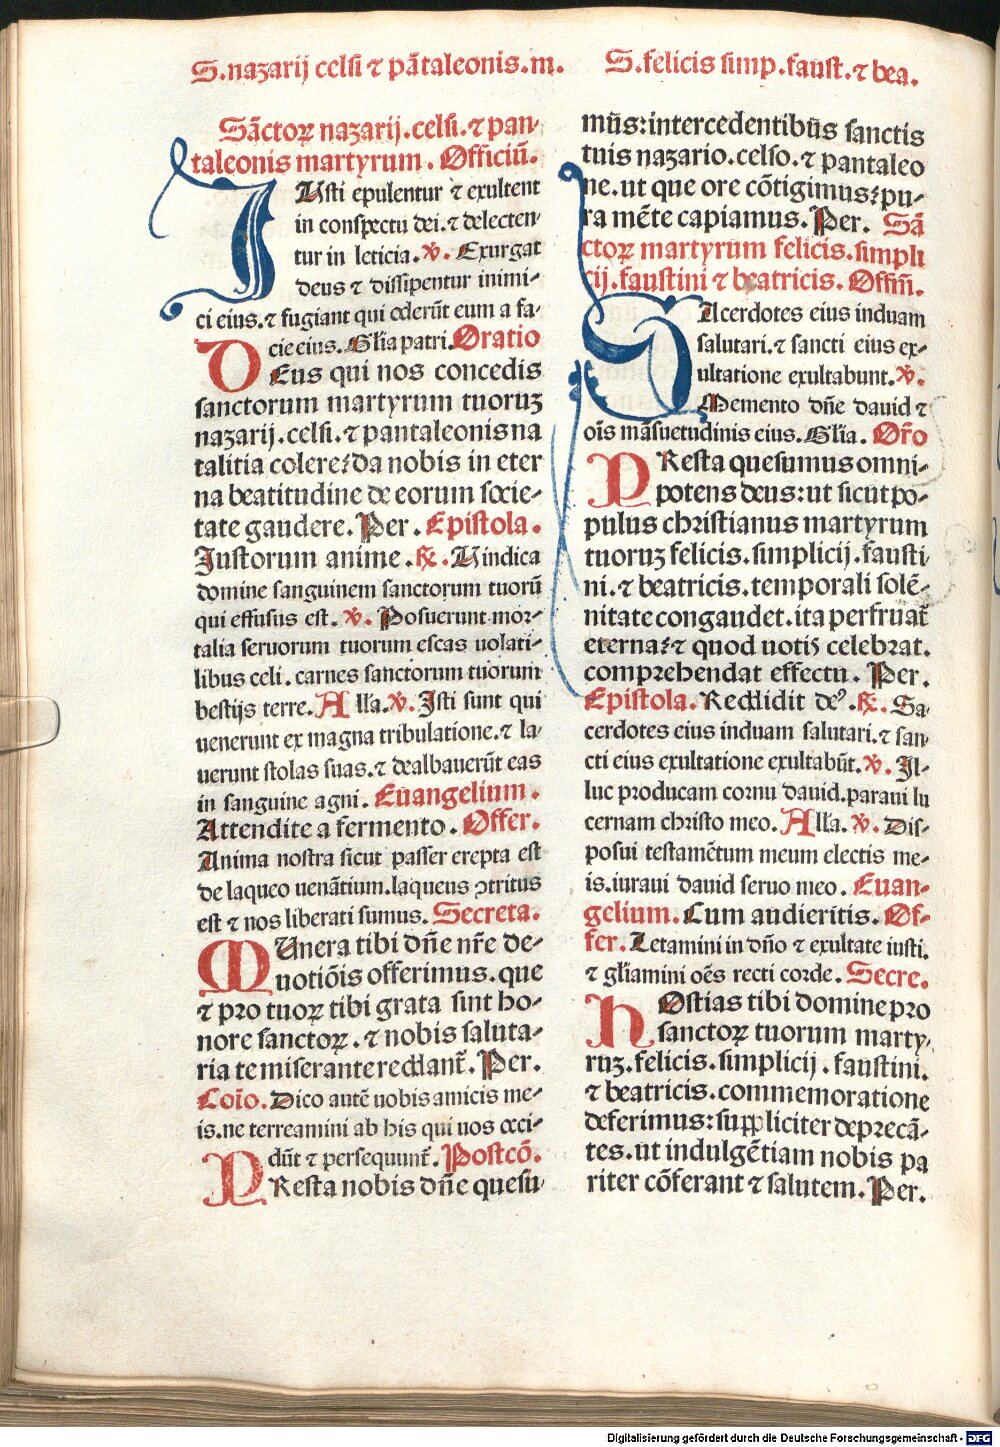 S.nazarij celsi ⁊ pãtaleonis.m.
S.felicis simp.faust.⁊ bea.
Sãctoꝝ nazarij.celsi.⁊ pan-
taleonis martyrum. Officiũ.
IUsti epulentur ⁊ exultent
in conspectu dei.⁊ delecten-
tur in leticia.℣. Exurgat
deus ⁊ dissipentur inimi-
ci eius.⁊ fugiant qui oderũt eum a fa-
cie eius. Glĩa patri. Oratio
DEus qui nos concedis
sanctorum martyrum tuoruz
nazarij.celsi.⁊ pantaleonis na
talitia colere: da nobis in eter
na beatitudine de eorum socie-
tate gaudere. Per. Epistola.
Justorum anime. ℟. Uindica
domine sanguinem sanctorum tuorũ
qui effusus est. ℣. Posuerunt mor-
talia seruorum tuorum escas uolati-
libus celi. carnes sanctorum tuorum
bestijs terre. Alla.℣. Isti sunt qui
uenerunt ex magna tribulatione.⁊ la-
uerunt stolas suas.⁊ dealbauerũt eas
in sanguine agni. Euangelium.
Attendite a fermento. Offer.
Anima nostra sicut passer erepta est
de laqueo uenãtium.laqueus ↄtritus
est ⁊ nos liberati sumus. Secreta.
MUnera tibi dñe nr̃e de-
uotiõis offerimus.que
⁊ pro tuoꝝ tibi grata sint ho-
nore sanctoꝝ.⁊ nobis saluta-
ria te miserante reddant̃. Per.
Coĩo. Dico autẽ uobis amicis me-
is.ne terreamini ab his qui uos occi-
dũt ⁊ persequunt̃. Postcõ.
PResta nobis dñe quesu-
mũs:intercedentibũs sanctis
tuis nazario.celso.⁊ pantaleo
ne.ut que ore cõtigimus: pu-
ra mẽte capiamus. Per. Sã
ctoꝝ martyrum felicis.simpli
cij.faustini ⁊ beatricis. Offiñ.
SAcerdotes eius induam
salutari.⁊ sancti eius ex-
ultatione exultabunt.℣.
Memento dñe dauid ⁊
oĩs mãsuetudinis eius. Glĩa. Or̃o
PResta quesumus omni-
potens deus:ut sicut po-
pulus christianus martyrum
tuoruz felicis.simplicij.fausti
ni.⁊ beatricis.temporali solẽ-
nitate congaudet.ita perfruat̃
eterna:⁊ quod uotis celebrat.
comprehendat effectu. Per.
Epistola. Reddidit deꝰ.℟. Sa-
cerdotes eius induam salutari.⁊ san
cti eius exultatione exultabũt.℣. Il-
luc producam cornu dauid.paraui lu
cernam christo meo. Alla. ℣. Dis-
posui testamẽtum meum electis me-
is.iuraui dauid seruo meo. Euan-
gelium. Cum audieritis. Of-
fer. Letamini in dño ⁊ exultate iusti.
⁊ glĩamini oẽs recti corde. Secre.
HOstias tibi domine pro
sanctoꝝ tuorum marty-
ruz.felicis.simplicij.faustini.
⁊ beatricis.commemoratione
deferimus:suppliciter deprecã-
tes.ut indulgẽtiam nobis pa
riter cõferant ⁊ salutem. Per.
Digitalisierung gefördert durch die Deutsche Forschungsgemeinschaft - DFG